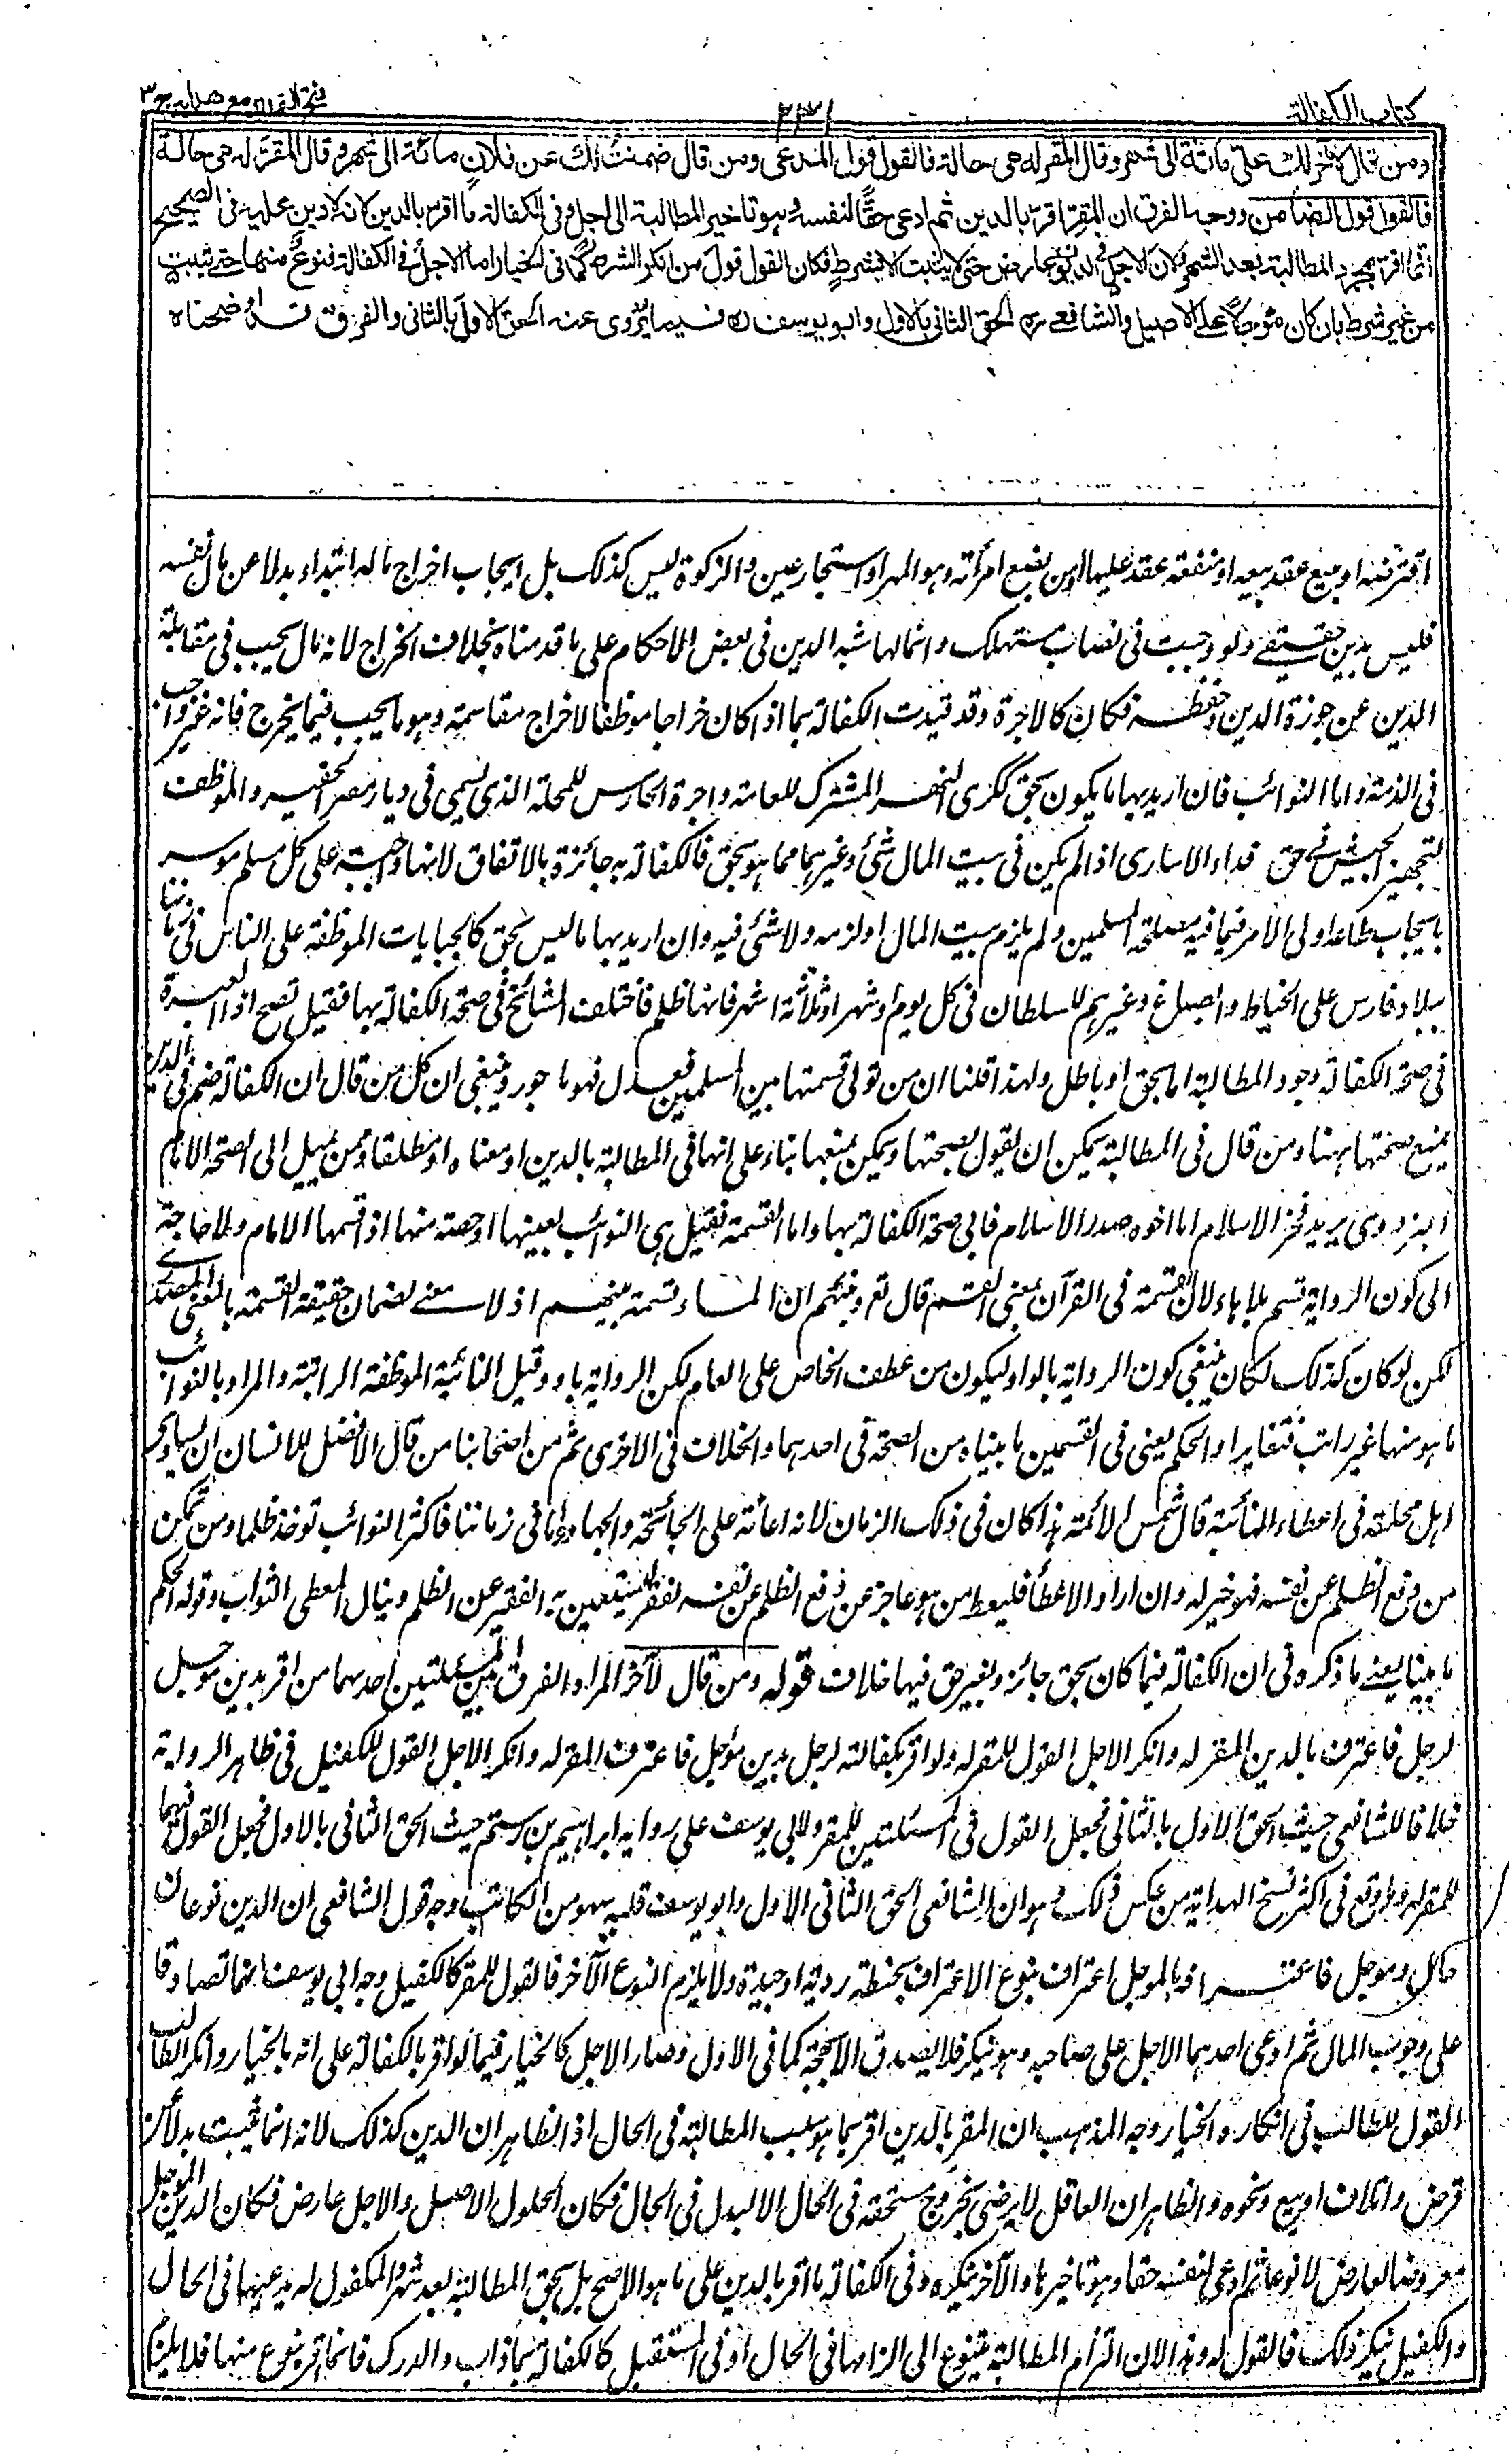 كتاب الكفالة
٢٣١
فتح القدير مع هدايه ج ٣
ومن قال لآخر لك علىّ مائة الى شهر وقال المقر له هى حالة فالقول قول المدعى ومن قال ضمنت لك عن فلان مائة الى شهر وقال المقر له هى حالة
فالقول قول الضامن ووجه الفرق ان المقر اقر بالدين ثم ادعى حقًّا لنفسه وهو تاخير المطالبة الى اجل وفى الكفالة ما اقر بالدين لانه لا دين عليه فى الصحيح
انما اقر بمجرد المطالبة بعد الشهر ولان الاجل فى الديون عارض حتى لا يثبت الا بشرط فكان القول قول من انكر الشرط كما فى الخيار اما الاجل فى الكفالة فنوع منها حتى يثبت
من غير شرط بان كان مؤجلا على الاصيل والشافعے رہ الحق الثانى بالاول وابو يوسف رہ فيما يروى عنه الحق الاول بالثانى والفرق قد اوضحناه
اقترضه او مبيع عقد بيعه او منفعة عقد عليها من بضع امرأته وهو المهر او استيجار عين والزكوة ليس كذلك بل ايجاب اخراج ماله ابتداء بدلا عن مال نفسه
فليس بدين حقيقے ولو وجبت فى نصاب مستهلك وانما لها شبه الدين فى بعض الاحكام على ما قدمناه بخلاف الخراج لانه مال يجب فى مقابلة
الذين عن حوزة الدين وحفظه فكان كالاجرة وقد قيدت الكفالة بما اذا كان خراجا موظفا لا خراج مقاسمة وهو ما يجب فيما يخرج فانه غير واجب
فى الذمة واما النوائب فان اريد بها ما يكون بحق ككرى النهر المشترك للعامة واجرة الحارس للمحلة الذى يسمى فى ديار مصر الخفير والموظف
لتجهيز الجيش فے حق فداء الاسارى اذا لم يكن فى بيت المال شئ وغيرهما مما هو بحق فالكفالة به جائزة بالاتفاق لانها واجبة على كل مسلم موسر
بايجاب طاعة اولى الامر فيما فيه مصلحة المسلمين ولم يلزم بيت المال او لزمه ولا شئ فيه وان اريد بها ما ليس بحق كالجبايات الموظفة على الناس فى زماننا
ببلاد فارس على الخياط والصباغ وغيرهم للسلطان فى كل يوم او شهر او ثلاثة اشهر فانها ظلم فاختلف المشائخ فى صحة الكفالة بها فقيل تصح اذ العبرة
فى صحة الكفالة وجود المطالبة اما بحق او باطل ولهذا قلنا ان من تولى قسمتها بين المسلمين فعدل فهو ماجور وينبغى ان كل من قال ان الكفالة ضم فى الدين
يمنع صحتها ههنا ومن قال فى المطالبة يمكن ان يقول بصحتها ويمكن بمنعها بناء على انها فى المطالبة بالدين او معناه او مطلقا وممن يميل الى الصحة الامام
البزدوى يريد فخر الاسلام اما اخوه صدر الاسلام فابى صحة الكفالة بها واما القسمة فقيل هى النوائب بعينها او حصة منها اذا قسمها الامام ولا حاجة
الى كون الرواية قسم بلا هاء لان القسمة فى القرآن بمعنى القسم قال تع ونبئهم ان الماء قسمة بينهم اذ لا معنے لضمان حقيقة القسمة بالمعنى المصدرے
لكن لو كان كذلك لكان ينبغى كون الرواية بالواو ليكون من عطف الخاص على العام لكن الرواية باو وقيل النائبة الموظفة الراتبة والمراد بالنوائب
ما هو منها غير راتب فتغايرا والحكم يعنى فى القسمين ما بيناه من الصحة فى احدهما والخلاف فى الاخرى ثم من اصحابنا من قال الافضل للانسان ان يساوى
اهل محلته فى اعطاء النائبة قال شمس الائمة هذا كان فى ذلك الزمان لانه اعانة على الجائحة والجهاد واما فى زماننا فاكثر النوائب توخذ ظلما ومن تمكن
من دفع الظلم عن نفسه فهو خير له وان اراد الاعطأ فليعط من هو عاجز عن دفع الظلم عن نفسه لفقر ليستعين به الفقير عن الظلم وينال المعطى الثواب وقوله الحكم
ما بينا يعنے ما ذكره فى ان الكفالة فيما كان بحق جائز وبغير حق فيها خلاف قوله ومن قال لآخر المراد الفرق بين المسئلتين احدهما من اقر بدين مؤجل
لرجل فاعترف بالدين المقر له وانكر الاجل القول للمقر له ولو اقر بكفالته لرجل بدين مؤجل فاعترف المقر له وانكر الاجل القول للكفيل فى ظاهر الرواية
خلافا للشافعى حيث الحق الاول بالثانى فجعل القول فى المسئلتين للمقر ولابى يوسف على رواية ابراهيم بن رستم حيث الحق الثانى بالاول فجعل القول فيهما
للمقر له وما وقع فى اكثر نسخ الهداية من عكس ذلك وهو ان الشافعى الحق الثانى الاول وابو يوسف قلبه سهو من الكاتب وجه قول الشافعى ان الدين نوعان
حال ومؤجل فاعترافه بالمؤجل اعتراف بنوع الاعتراف بحنطة ردية او جيدة ولا يلزم النوع الآخر فالقول للمقر كالكفيل وجه ابى يوسف انهما تصادقا
على وجوب المال ثم ادعى احدهما الاجل على صاحبه وهو ينكر فلا يصدق الا بحجة كما فى الاول وصار الاجل كالخيار فيما لو اقر بالكفالة على انه بالخيار وانكر الطالب
القول للطالب فى انكاره الخيار وجه المذهب ان المقر بالدين اقر بما هو سبب المطالبة فى الحال اذ الظاهر ان الدين كذلك لانه انما يثبت بدلا من
قرض واتلاف او بيع ونحوه والظاهر ان العاقل لا يرضى بخروج مستحقه فى الحال الا لبدل فى الحال فكان الحلول الاصل والاجل عارض فكان الدين المؤجل
معروضا لعارض لا نوعا ثم ادعى لنفسه حقا وهو تاخيرها والآخر ينكره وفى الكفالة ما اقر بالدين على ما هو الاصح بل بحق المطالبة بعد شهر والمكفول له يدعيها فى الحال
والكفيل ينكر ذلك فالقول له وهذا لان التزام المطالبة يتنوع الى التزامها فى الحال او فى المستقبل كالكفالة بما ذاب والدرك فانما اقر بنوع منها فلا يلزم